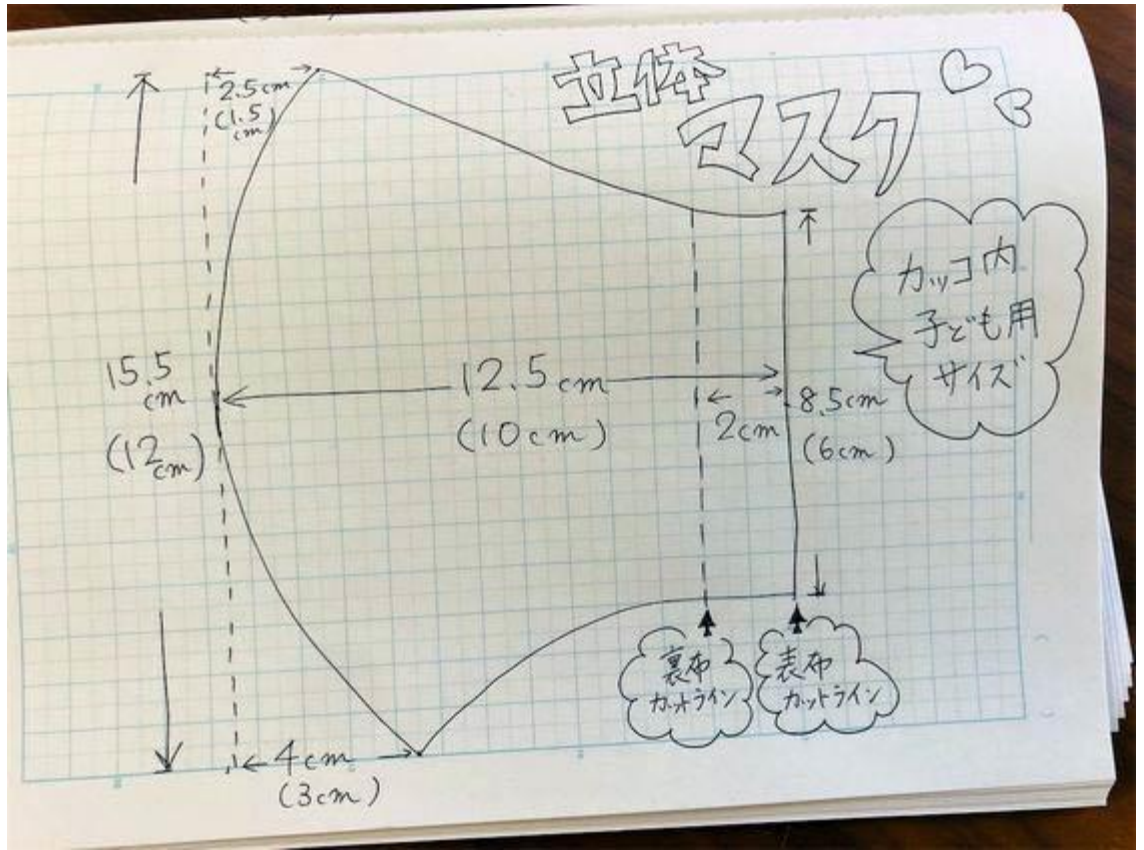 立体
マスク
2.5cm
(1.5
cm)
カッコ内
子ども用
サイズ
15.5
cm
(12
cm)
12.5cm
(10cm)
2cm
8.5cm
(6cm)
裏布
カットライン
表布
カットライン
4cm
(3cm)